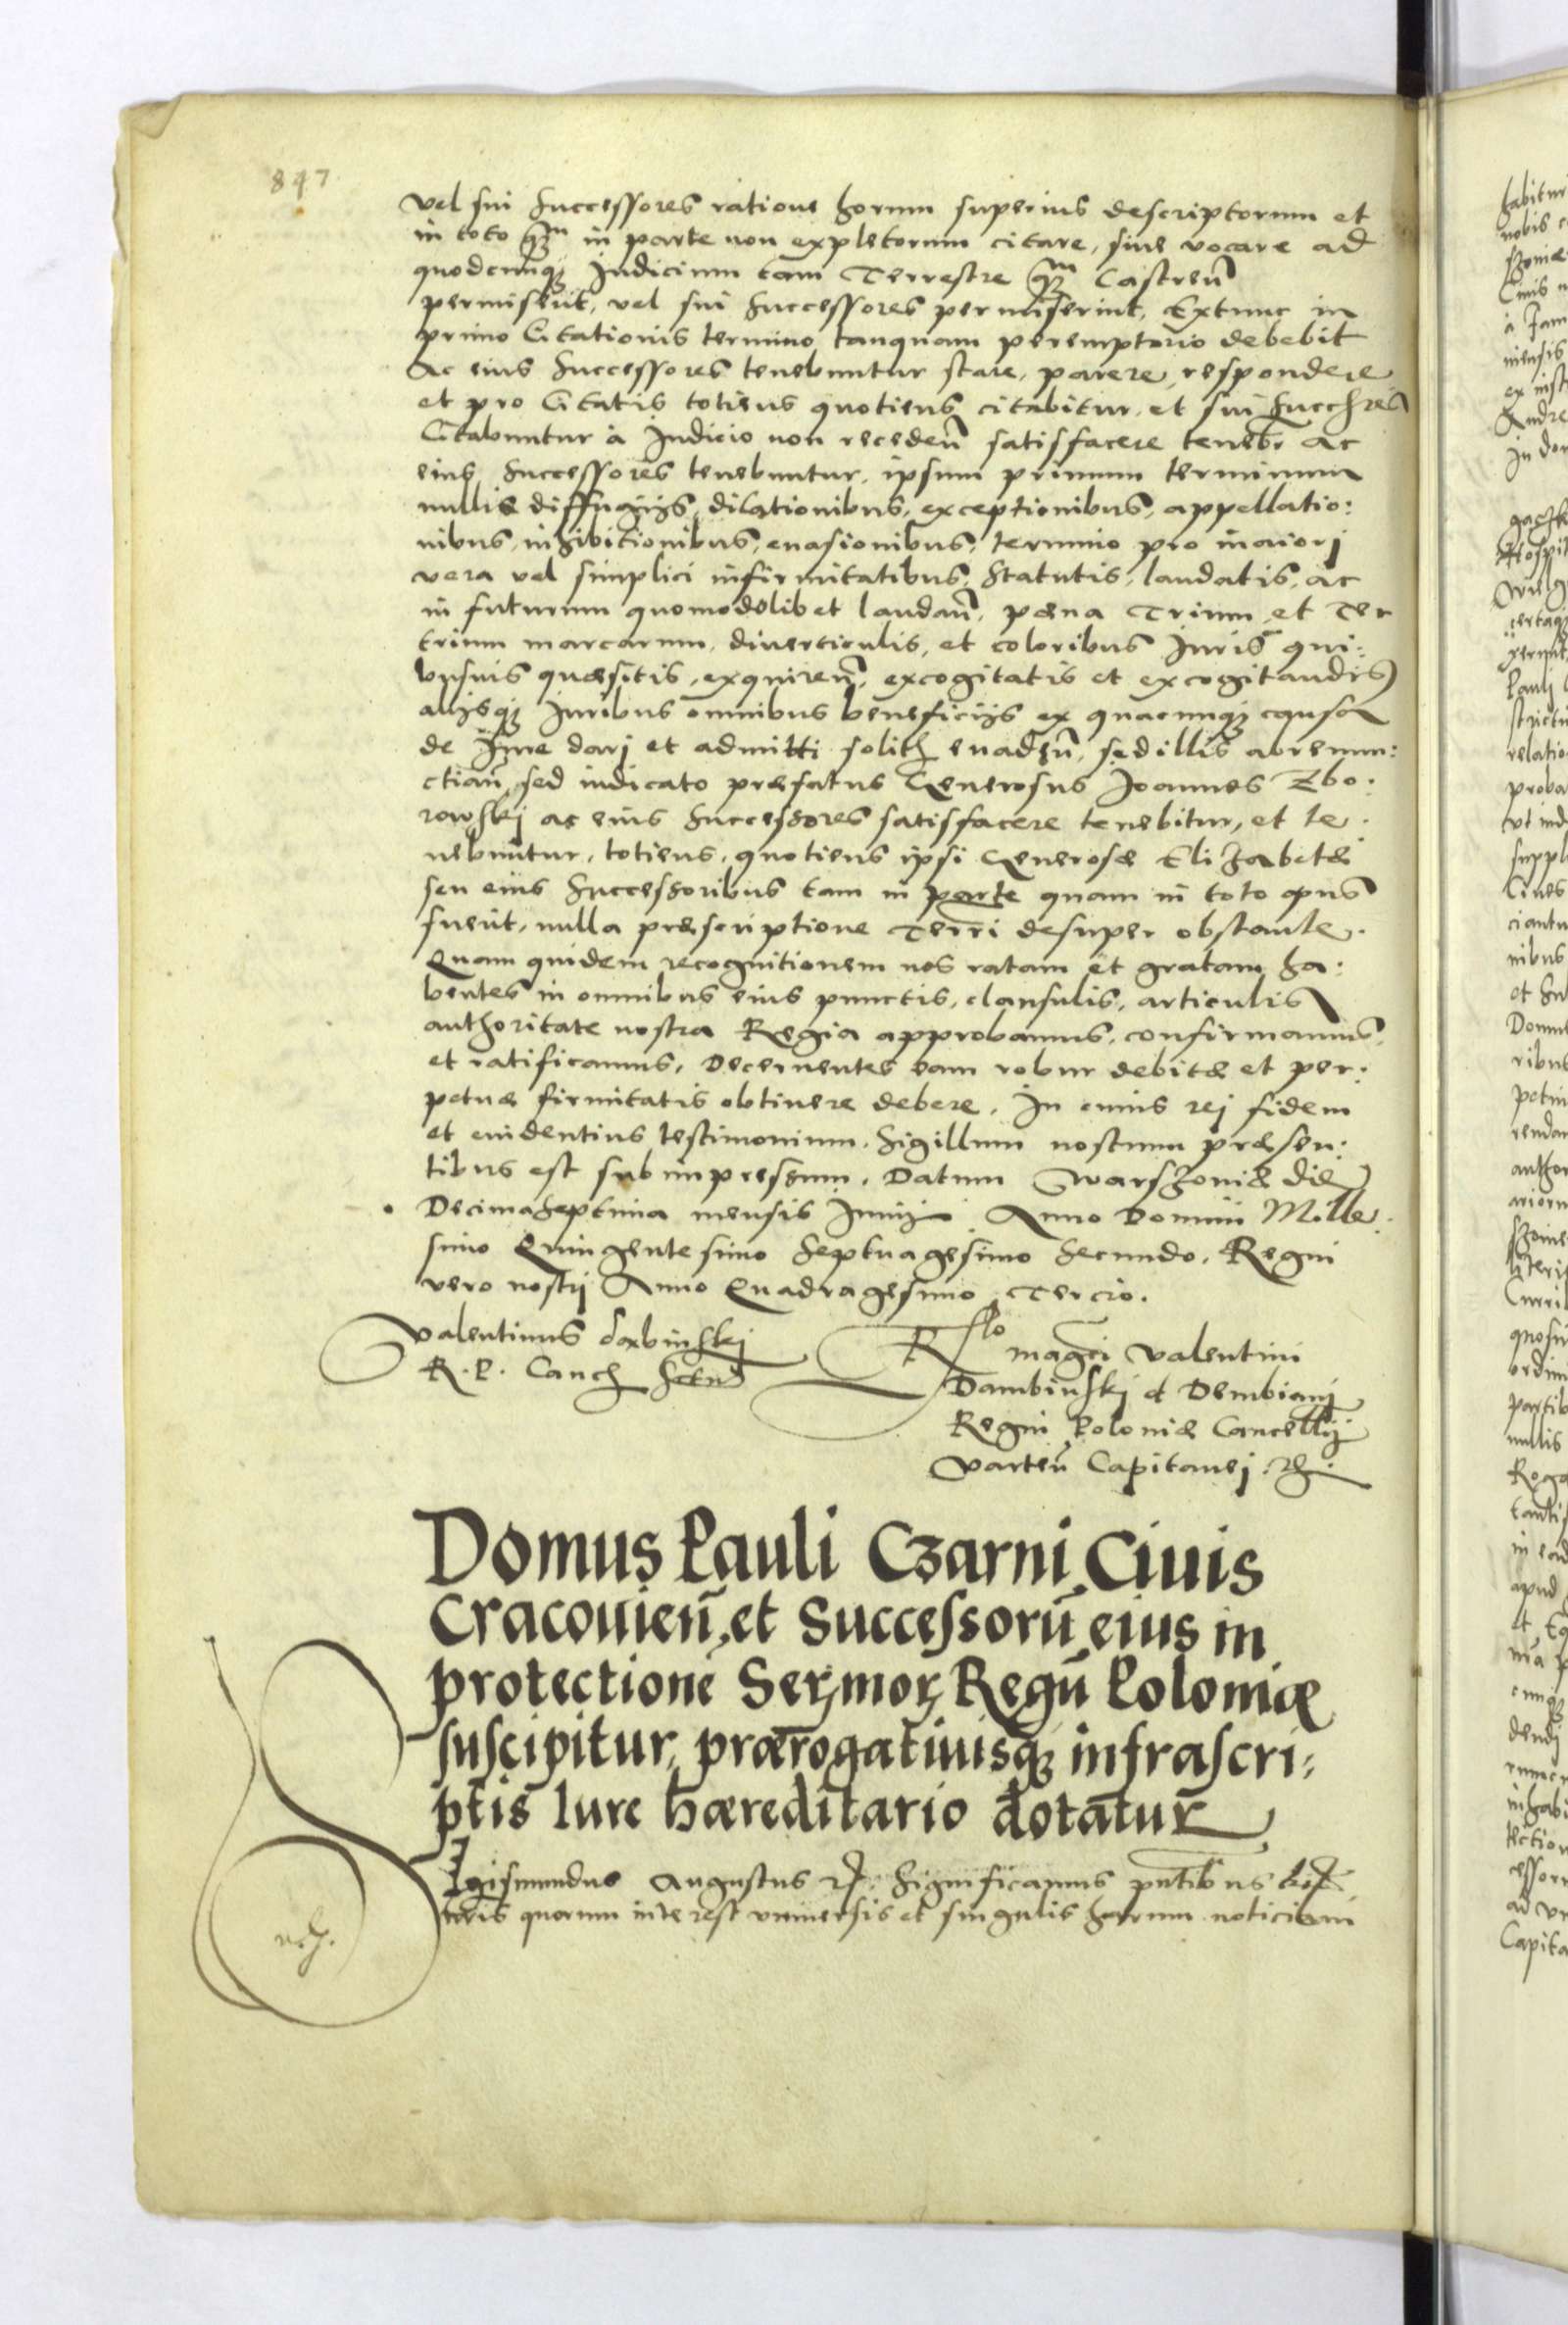 847
vel sui Successores ratione horum superius descriptorum et
in toto q̃m in parte non expletorum citare, siue vocare ad
quodcunq; Judicium tam Terrestre q̃m Castreñ
permiserit, vel sui Successores permiserint, Extunc in
primo Citationis termino tanquam peremptorio debebit
Ac eius Successores tenebuntur stare, parere, respondere
et pro Citatis totiens quotiens citabitur, et sui
Citabuntur à Judicio non recedeñ satisfacere teneb: ac
eius Successores tenebuntur, ipsum primum terminum
nullis diffugijs, dilationibus, exceptionibus, appellatio:
nibus, inhibitionibus, euasionibus, termino pro maiori
vera vel simplici infirmitatibus, Statutis, laudatis, ac
in futurum quomodolibet laudañ, pæna Trium et Ter
trium marcarum, diuerticulis, et coloribus Juris qui:
busuis quæsitis, exquireñ, excogitatis et excogitandis
alijsq; Juribus omnibus beneficijs ex quacunq; causa
de Jure darj et admitti solit, euadeñ, sed illis abrenun:
ctiañ, sed iudicato præfatus Generosus Joannes Zbo:
rowskj ac eius Successores satisfacere tenebitur, et te:
nebuntur, totiens, quotiens ipsi Generosæ Elizabetæ
seu eius Successoribus tam in parte quam in toto opus
fuerit, nulla præscriptione Terrī desuper obstante.
Quam quidem recognitionem nos ratam et gratam ha:
bentes in omnibus eius punctis, clausulis, articulis
authoritate nostra Regia approbamus, confirmamus,
et ratificamus, Decernentes eam robur debitæ et per:
petuæ firmitatis obtinere debere. In cuius rej fidem
et euidentius testimonium, Sigillum nostrum præsen:
tibus est subimpressum. Datum Warszouiæ die
Decimaseptima mensis Junij Anno Domini Mille:
simo Quingentesimo Septuagesimo Secundo, Regni
vero nostrj Anno Quadragesimo Tercio.
Valentinus Dąbinskj
R. P. Canc
Rlo
magci Valentini
Dambinskj d Dembianj
Regni Poloniæ Cancellij
Varteñ Capitanej
Domus Pauli Czarni Ciuis
Cracouieñ, et Successorū eius in
protectionē Serꝫmorꝫ Regū Poloniæ
suscipitur, prærogatiuisq; infrascri:
ptis Iure hæreditario dotatur
Sigismundus Augustus Significamus pntibus
turis quorum interest vniuersis et singulis harum noticiam